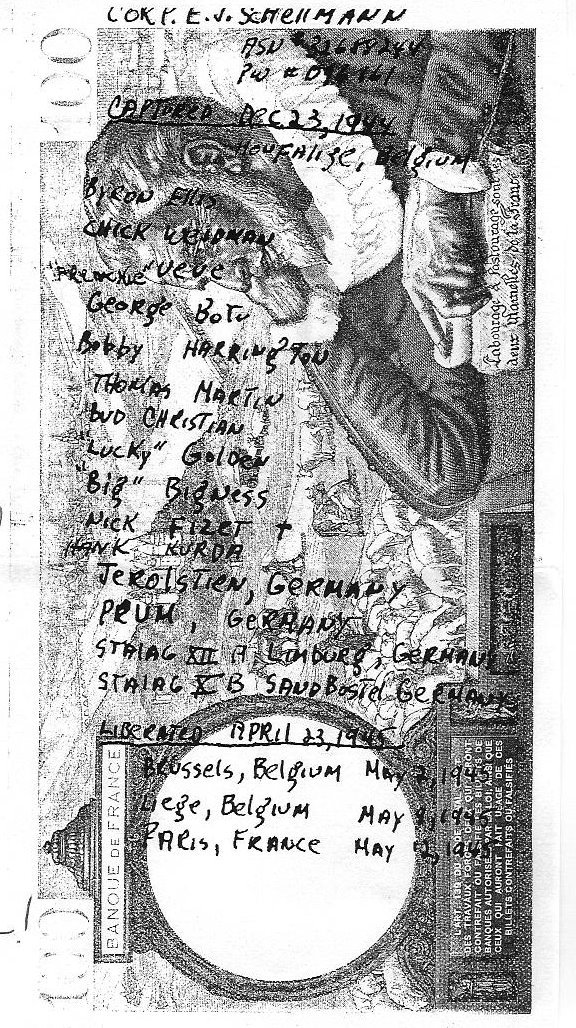 CORP. E. J. SCHELLMANN
ASN #
PW #
CAPTURED DEC 23, 1944
HOUFALIZE, BELGIUM
BYRON ELLIS
CHICK WEIDMAN
"FRENCHIE" VEVE
GEORGE
BOBBY HARRINGTON
THOMAS MARTIN
BUD CHRISTIAN
"LUCKY" GOLDEN
"BIG" BIGNESS
NICK FIZET +
HANK KURDA
JEROLSTIEN, GERMANY
PRUM, GERMANY
STALAG XII A LIMBURG, GERMANY
STALAG X B SANDBOSTEL GERMANY
LIBERATED APRIL 23, 1945
BRUSSELS, BELGIUM MAY 2, 1945
LIEGE, BELGIUM MAY 1945
PARIS, FRANCE MAY 12, 1945
100
Labourage & Pastourage sont les
deux Mamelles de la France
BANQUE DE FRANCE
L'ARTICLE 139 DU CODE PÉNAL
DES TRAVAUX FORCÉS CEUX QUI AURONT
CONTREFAIT OU FALSIFIÉ LES BILLETS DE
BANQUES AUTORISÉES PAR LA LOI, AINSI QUE
CEUX QUI AURONT FAIT USAGE DE CES
BILLETS CONTREFAITS OU FALSIFIÉS
100